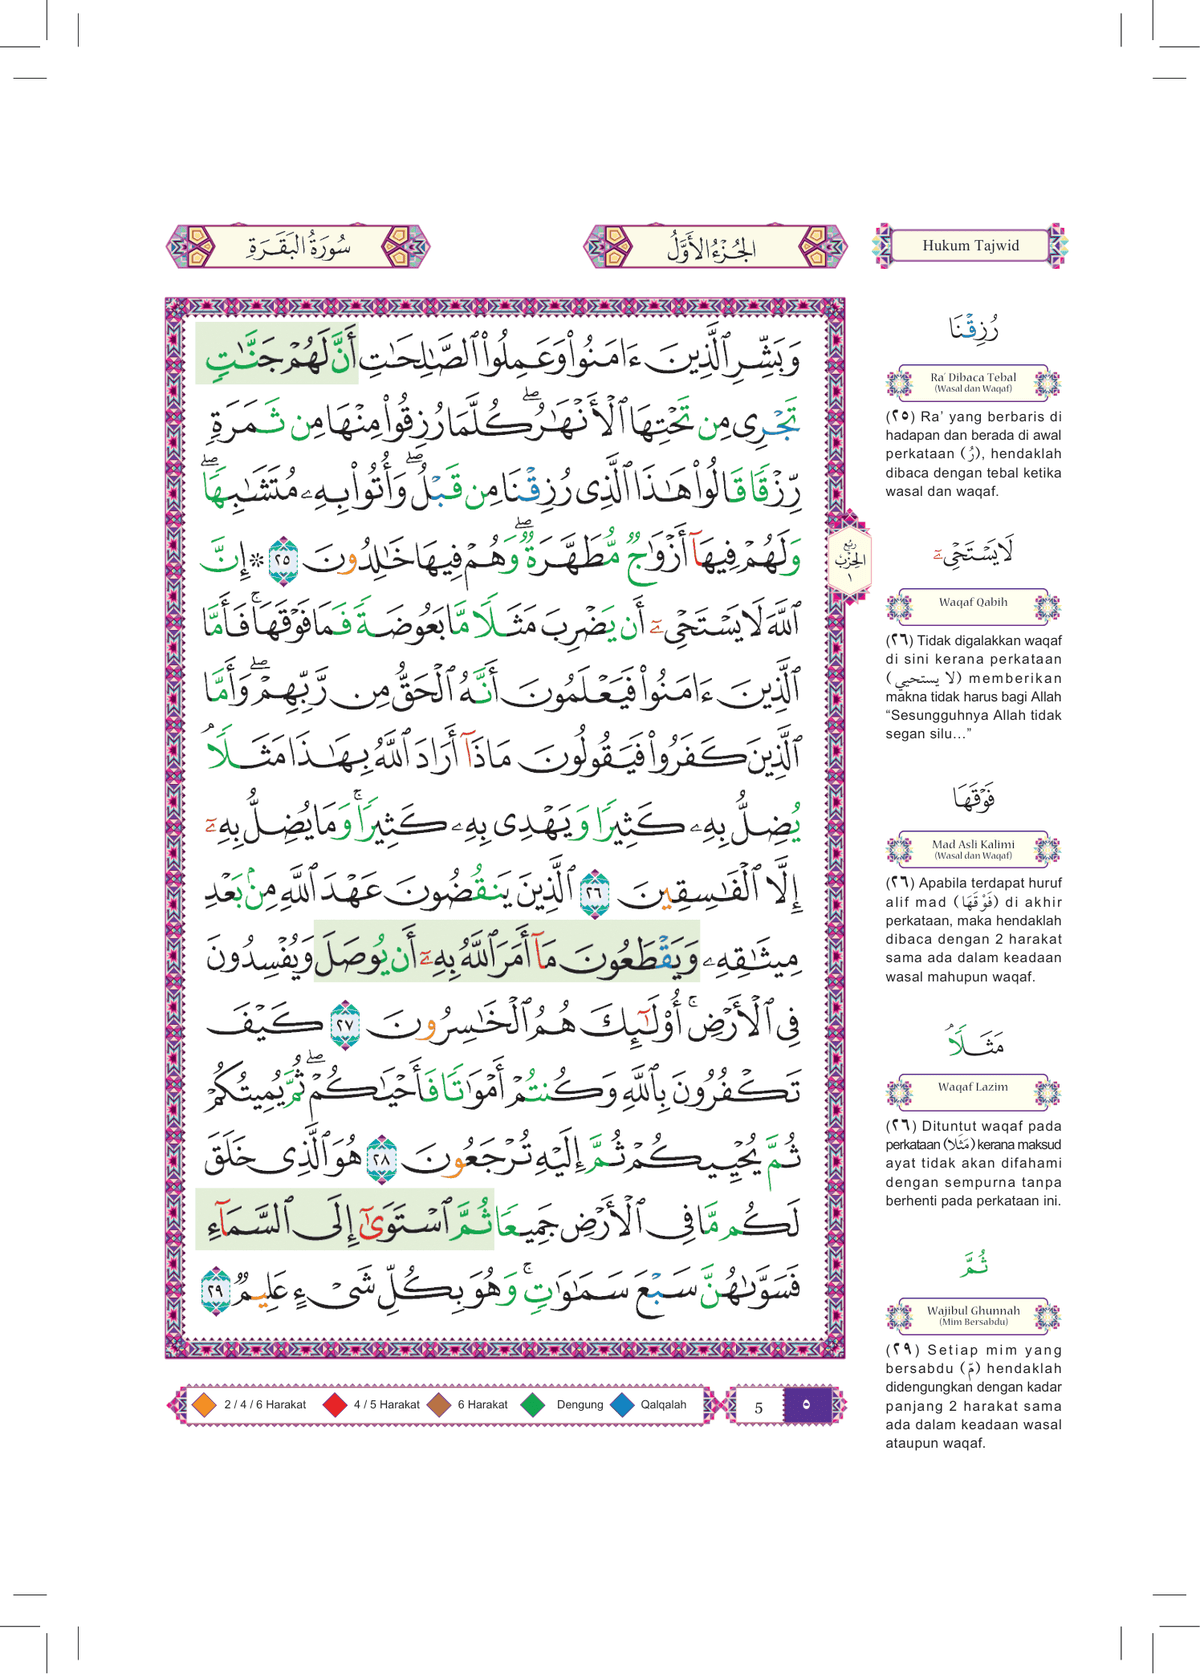 سُورَةُ البَقَرَةِ
الجُزْءُ الأَوَّلُ
Hukum Tajwid
وَبَشِّرِ ٱلَّذِينَ ءَامَنُوا۟ وَعَمِلُوا۟ ٱلصَّـٰلِحَـٰتِ أَنَّ لَهُمْ جَنَّـٰتٍ
تَجْرِى مِن تَحْتِهَا ٱلْأَنْهَـٰرُ ۖ كُلَّمَا رُزِقُوا۟ مِنْهَا مِن ثَمَرَةٍ
رِّزْقًا قَالُوا۟ هَـٰذَا ٱلَّذِى رُزِقْنَا مِن قَبْلُ ۖ وَأُتُوا۟ بِهِۦ مُتَشَـٰبِهًا ۖ
وَلَهُمْ فِيهَآ أَزْوَٰجٌ مُّطَهَّرَةٌ ۖ وَهُمْ فِيهَا خَـٰلِدُونَ ٢٥ * إِنَّ
ٱللَّهَ لَا يَسْتَحْىِۦٓ أَن يَضْرِبَ مَثَلًا مَّا بَعُوضَةً فَمَا فَوْقَهَا ۚ فَأَمَّا
ٱلَّذِينَ ءَامَنُوا۟ فَيَعْلَمُونَ أَنَّهُ ٱلْحَقُّ مِن رَّبِّهِمْ ۖ وَأَمَّا
ٱلَّذِينَ كَفَرُوا۟ فَيَقُولُونَ مَاذَآ أَرَادَ ٱللَّهُ بِهَـٰذَا مَثَلًا ۘ
يُضِلُّ بِهِۦ كَثِيرًا وَيَهْدِى بِهِۦ كَثِيرًا ۚ وَمَا يُضِلُّ بِهِۦٓ
إِلَّا ٱلْفَـٰسِقِينَ ٢٦ ٱلَّذِينَ يَنقُضُونَ عَهْدَ ٱللَّهِ مِنۢ بَعْدِ
مِيثَـٰقِهِۦ وَيَقْطَعُونَ مَآ أَمَرَ ٱللَّهُ بِهِۦٓ أَن يُوصَلَ وَيُفْسِدُونَ
فِى ٱلْأَرْضِ ۚ أُو۟لَـٰٓئِكَ هُمُ ٱلْخَـٰسِرُونَ ٢٧ كَيْفَ
تَكْفُرُونَ بِٱللَّهِ وَكُنتُمْ أَمْوَٰتًا فَأَحْيَـٰكُمْ ۖ ثُمَّ يُمِيتُكُمْ
ثُمَّ يُحْيِيكُمْ ثُمَّ إِلَيْهِ تُرْجَعُونَ ٢٨ هُوَ ٱلَّذِى خَلَقَ
لَكُم مَّا فِى ٱلْأَرْضِ جَمِيعًا ثُمَّ ٱسْتَوَىٰٓ إِلَى ٱلسَّمَآءِ
فَسَوَّىٰهُنَّ سَبْعَ سَمَـٰوَٰتٍ ۚ وَهُوَ بِكُلِّ شَىْءٍ عَلِيمٌ ٢٩
رُبْع
الحِزْبُ
١
رُزِقْنَا
Ra' Dibaca Tebal
(Wasal dan Waqaf)
(٢٥) Ra' yang berbaris di
hadapan dan berada di awal
perkataan (رُ), hendaklah
dibaca dengan tebal ketika
wasal dan waqaf.
لَا يَسْتَحْىِۦٓ
Waqaf Qabih
(٢٦) Tidak digalakkan waqaf
di sini kerana perkataan
(لا يستحيي) memberikan
makna tidak harus bagi Allah
“Sesungguhnya Allah tidak
segan silu…”
فَوْقَهَا
Mad Asli Kalimi
(Wasal dan Waqaf)
(٢٦) Apabila terdapat huruf
alif mad (فَوْقَهَا) di akhir
perkataan, maka hendaklah
dibaca dengan 2 harakat
sama ada dalam keadaan
wasal mahupun waqaf.
مَثَلًا ۘ
Waqaf Lazim
(٢٦) Dituntut waqaf pada
perkataan (مَثَلًا) kerana maksud
ayat tidak akan difahami
dengan sempurna tanpa
berhenti pada perkataan ini.
ثُمَّ
Wajibul Ghunnah
(Mim Bersabdu)
(٢٩) Setiap mim yang
bersabdu (مّ) hendaklah
didengungkan dengan kadar
panjang 2 harakat sama
ada dalam keadaan wasal
ataupun waqaf.
2 / 4 / 6 Harakat 4 / 5 Harakat 6 Harakat Dengung Qalqalah 5 ٥